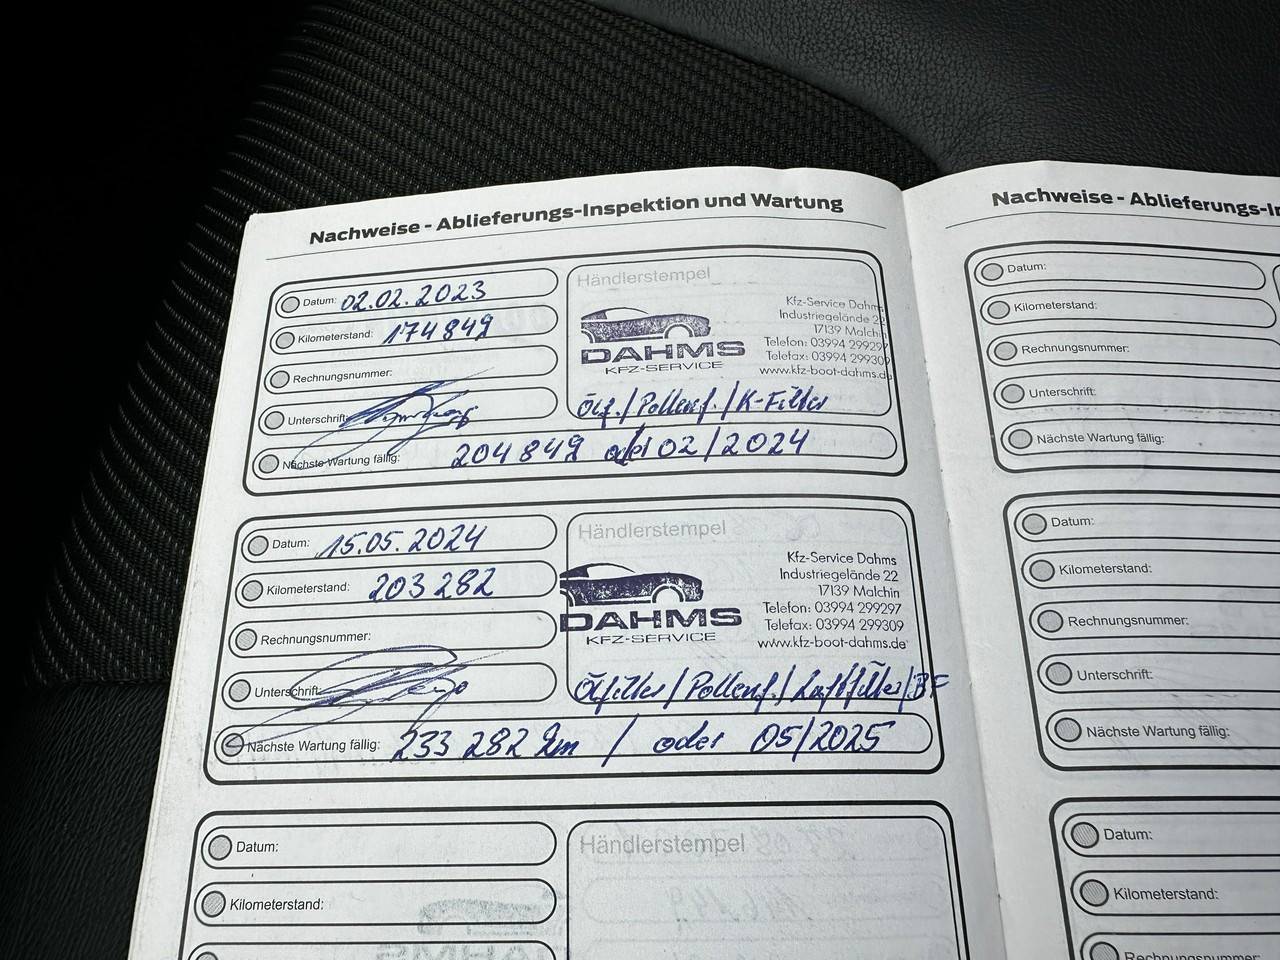 Nachweise - Ablieferungs-Inspektion und Wartung
Datum: 02.02.2023
Kilometerstand: 174849
Rechnungsnummer:
Unterschrift:
Händlerstempel
Kfz-Service Dahms
Industriegelände 22
17139 Malchin
Telefon: 03994 299297
Telefax: 03994 299309
www.kfz-boot-dahms.de
DAHMS
KFZ-SERVICE
Ölf./Pollenf./K-Filter
Nächste Wartung fällig: 204849 oder 02/2024
Datum: 15.05.2024
Kilometerstand: 203 282
Rechnungsnummer:
Unterschrift:
Händlerstempel
Kfz-Service Dahms
Industriegelände 22
17139 Malchin
Telefon: 03994 299297
Telefax: 03994 299309
www.kfz-boot-dahms.de
DAHMS
KFZ-SERVICE
Ölfilter/Pollenf./Luftfilter/BF
Nächste Wartung fällig: 233 282 km / oder 05/2025
Datum:
Kilometerstand:
Händlerstempel
Nachweise - Ablieferungs-In
Datum:
Kilometerstand:
Rechnungsnummer:
Unterschrift:
Nächste Wartung fällig:
Datum:
Kilometerstand:
Rechnungsnummer:
Unterschrift:
Nächste Wartung fällig:
Datum:
Kilometerstand:
Rechnungsnummer: